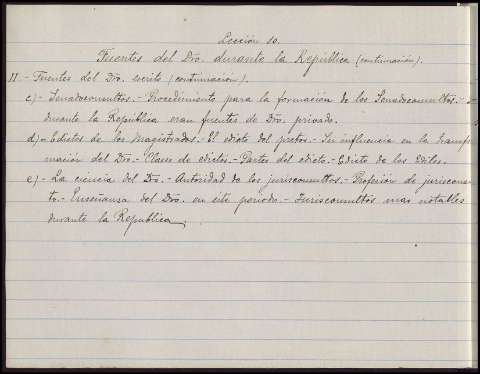 Lección 10.
Fuentes del Dro. durante la República (continuación).
II.- Fuentes del Dro. escrito (continuación).
c)- Senadoconsultos.- Procedimiento para la formación de los Senadoconsultos.-
durante la República eran fuentes de Dro. privado.
d)- Edictos de los Magistrados.- El edicto del pretor.- Su influencia en la transfor-
mación del Dro.- Clases de edictos.- Partes del edicto.- Edicto de los Ediles.
e)- La ciencia del Dro.- Autoridad de los jurisconsultos.- Profesión de jurisconsul-
to.- Enseñanza del Dro. en este periodo.- Jurisconsultos mas notables
durante la República.